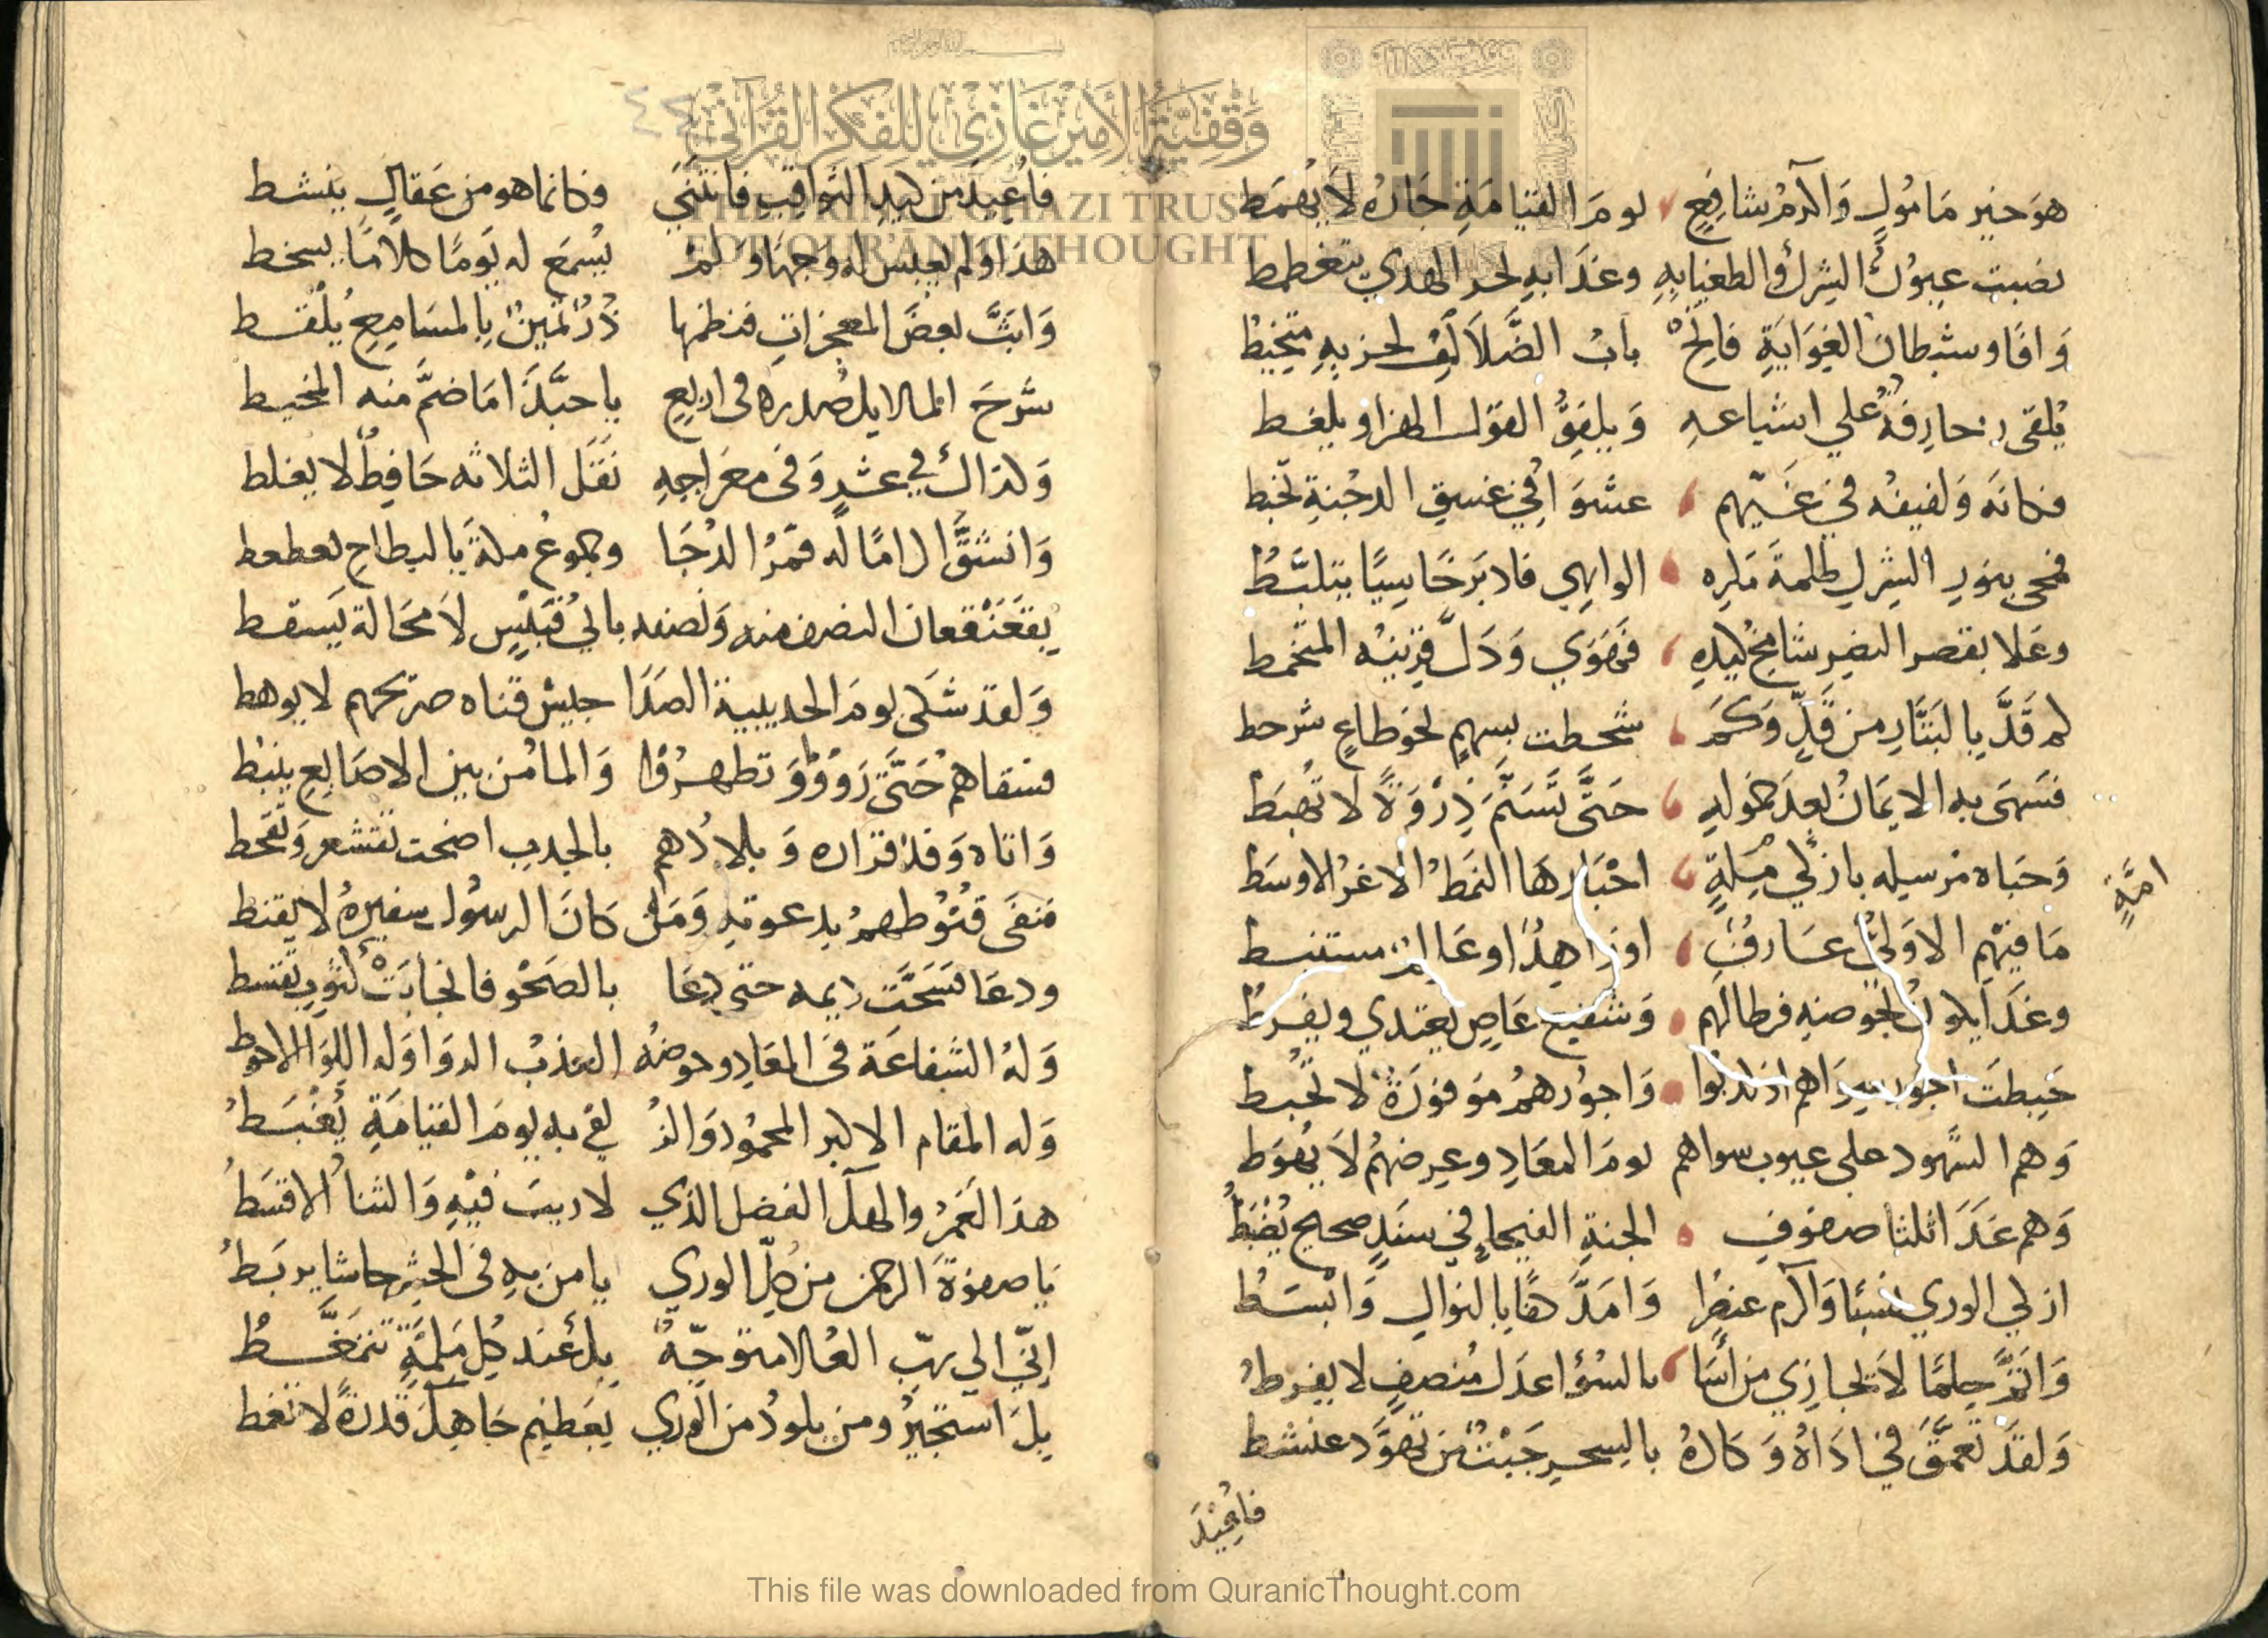 هوَ خير مَامُولٍ وَاكرم شافعٍ يومَ القيامَةِ جَارُهُ لَا يُهمَط
نضبت عيونُ الشركِ والطغيان به وغدَا به بحر الهدي يتغطمط
وَافَا وشيطان الغِوَايَةِ فاتحْ بابُ الضَّلَالَةِ لحزبهِ متخبِّط
يُلقى زخارفهُ علي اشياعهِ وَيلفِقُ القول الهزا ويلغط
فكانهَ وَلفيفهُ في غَيّهم عشوَا في غسق الدجُنةِ تخبط
فمحى بنورِ ظلمةَ الواهي فلا برحا سبيًا يتلبَّطُ
وعَلا بقصر النصرِ شامخ فهَوَي وَذَلَّ قرينه المتخمط
كم قَدَّ بِالبَتَّارِ من قَدٍّ وَكَمَ شحطت بسهمٍ نحوَ طاغٍ شرحط
فسَمَى به الايمَانُ بعدَ خمولهِ حَتَّى تَسَنَّمَ ذِرْوَةً لا تُهبَط
وَحَبَاه مُرسِله بازكي مِلةٍ اخبَارهَا النمَطُ الاغرُ الاوسَط
امَّةٍ
مَا فيهمِ الا وَليُّ عَارفٌ او زاهدٌ او عَالمٌ مستنبط
وغدَا لحَوضهِ فرطا لهم وَشفيع عَاصٍ يعتدي ويفرطُ
حَبِطتَ وَاجورهمُ مَوفورَةٌ لا تُحبط
وَهم الشهود على عيوب سواهم يومَ المعَادِ وعِرضهُم لَا
وَهم غدَا اثلثا صفوف الجنةِ الفيحاءِ في سندٍ صحيح يُضبَط
ازكي الوري نسبًا وَاكرم عنصرًا وَامَدَّ كفًا بالنوالِ وَابْسَطُ
وَاتمَّ حِلمًا لا يجازي من أسَا بالسُّوءِ اعدَل مُنصِفٍ لا يفرطُ
وَلقدَ تعمَّقَ في اذَاهُ وَكادَهُ بالسِحرِ جَبْتٌ من يَهوَّد عنشط
فاعُيْدَ
فاعُيدَ من كيدِ الثواقِبِ فانثنَيَ وكانما هو من عَقالٍ ينشط
هذا ولم يعبس له وَجهًا وَلمْ يُسمَع له يَومًا كلامًا يسخط
وَابَثَّ بعضَ المعجزاتِ فنظمها دُرٌّ ثمينٌ بالمسَامِعِ يُلقَط
شرحَ المَلايك صدره في اربعٍ ياحبَّذَا مَا ضَمَّ منه المخيط
وَلذاك في عشرٍ وَفي معرَاجهِ نقَلَ الثلاثه حَافظٌ لا يغلط
وَانشقَّ اكرامًا له قمرُ الدُجَا وجموع مكةَ بالبطاحِ تعطعط
بقعَنقعان النصف منه وَنصفه بابي قبَيْسٍ لا محَالَة يَسقط
وَلقد شكى يومَ الحديبية الصَدَا جيش قناه صريحهم لا يوهط
فسقاهمُ حَتَّى رَوَوْا وَتطهرُوْا وَالمَا مُن بين الاصَابعِ ينبْط
وَاتاه وَفدُ فزاره وَبلادُهم بالجدبِ اضحت تقشعر وَتقحط
فنفَى قنُوطهمُ بدعوتهِ وَمَنْ كانَ الرسُول سفيرهُ لا يقنط
ودعَا فسَحَّت ديمه حتى دعَا بالصَحْو فانجابَتْ
وَلهُ الشفاعَة في المعَادِ وحوضُه العَذبُ الروا وَله اللوَا الاحوط
وَله المقام الاكبر المحمُود وَالذِ يغ به يومَ القيامَةِ يُغبَطُ
هذَا لعَمرُ والهكَ الفضل الذي لا ريبَ فيْهِ وَالثنا الاقسَطُ
يَا صفوَةَ الرحمن من كلِّ الوري يا من بهِ في الحشرِ جاشا يربَطُ
إنّي الي ربِّ العُلا متوجّهٌ بك عند كُل مَلمَّةٍ تتمغَّطُ
بك استجيرُ ومن يلوذُ من الوري بعَظيم جَاهِكَ قدرَهُ لا تغمط